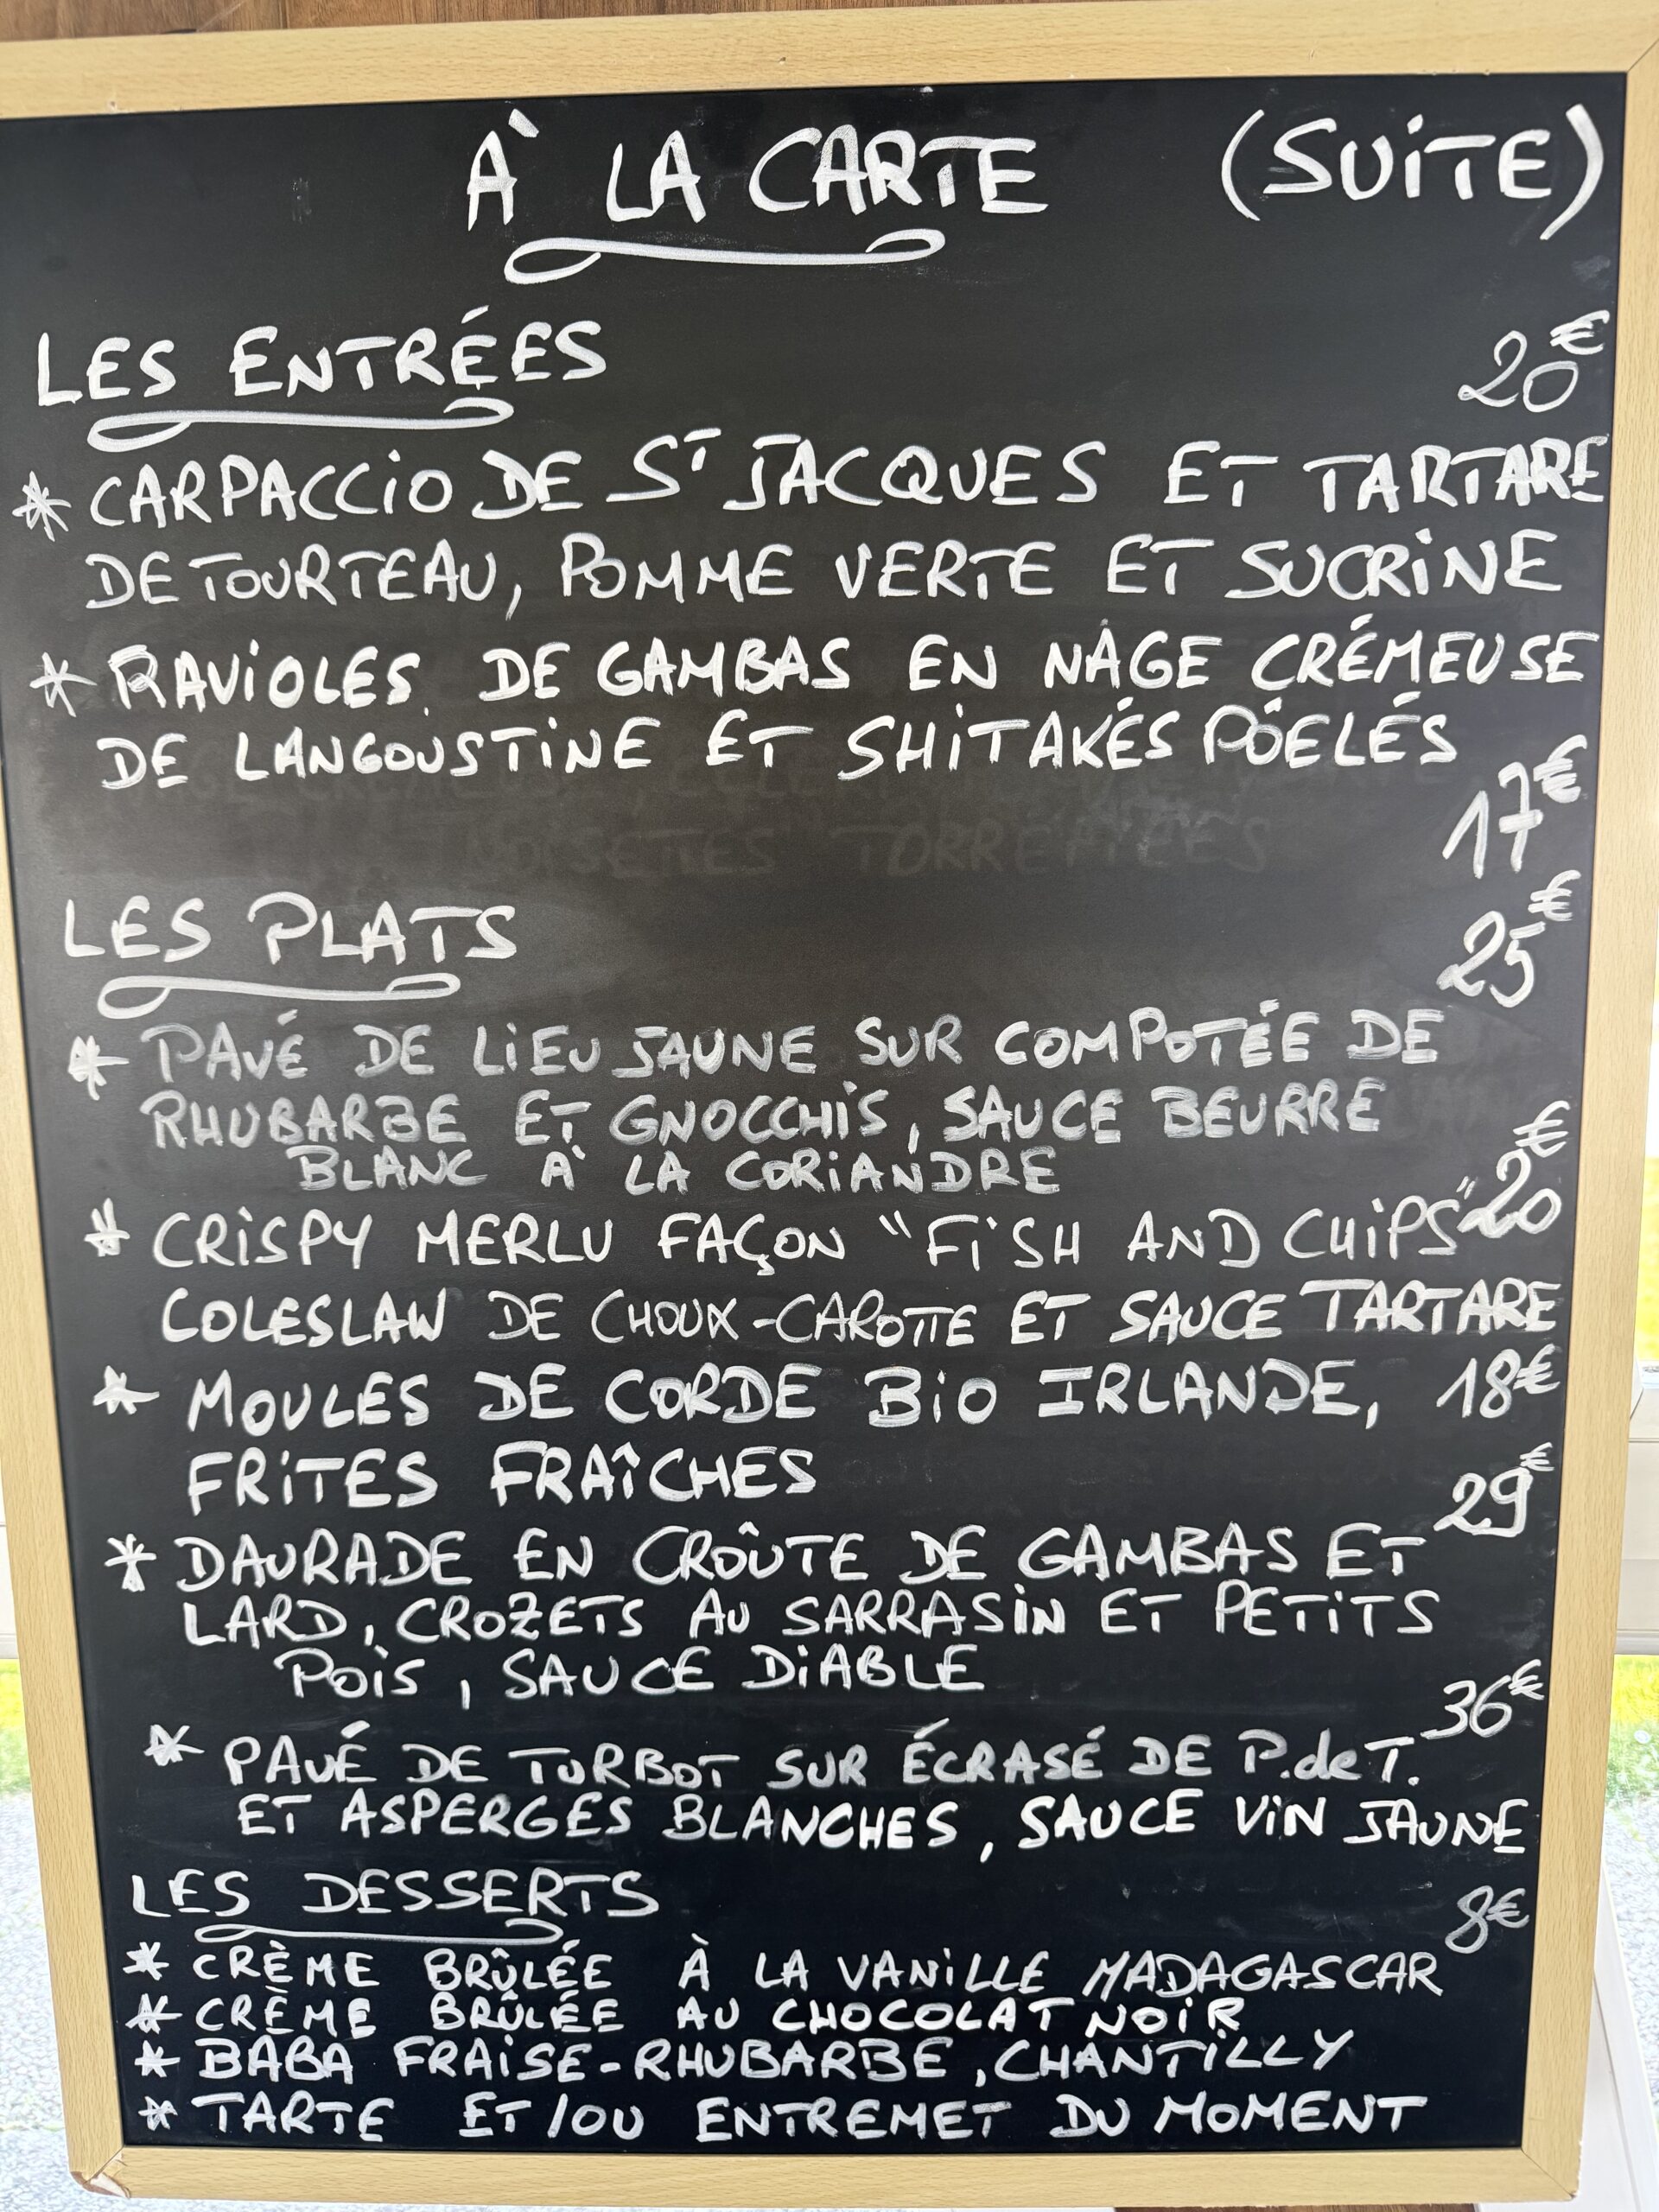 À LA CARTE (SUITE)
LES ENTRÉES 20€
* CARPACCIO DE ST JACQUES ET TARTARE
DE TOURTEAU, POMME VERTE ET SUCRINE
* RAVIOLES DE GAMBAS EN NAGE CRÉMEUSE
DE LANGOUSTINE ET SHITAKÉS PÖELÉS
17€
NOISETTES TORRÉFIÉES
LES PLATS 25€
* PAVÉ DE LIEU JAUNE SUR COMPOTÉE DE
RHUBARBE ET GNOCCHIS, SAUCE BEURRE
BLANC À LA CORIANDRE
* CRISPY MERLU FAÇON "FISH AND CHIPS" 20€
COLESLAW DE CHOUX-CAROTTE ET SAUCE TARTARE
* MOULES DE CORDE BIO IRLANDE, 18€
FRITES FRAÎCHES
29€
* DAURADE EN CROÛTE DE GAMBAS ET
LARD, CROZETS AU SARRASIN ET PETITS
POIS, SAUCE DIABLE
36€
* PAVÉ DE TURBOT SUR ÉCRASÉ DE P.de T.
ET ASPERGES BLANCHES, SAUCE VIN JAUNE
LES DESSERTS 8€
* CRÈME BRÛLÉE À LA VANILLE MADAGASCAR
* CRÈME BRÛLÉE AU CHOCOLAT NOIR
* BABA FRAISE-RHUBARBE, CHANTILLY
* TARTE ET/OU ENTREMET DU MOMENT